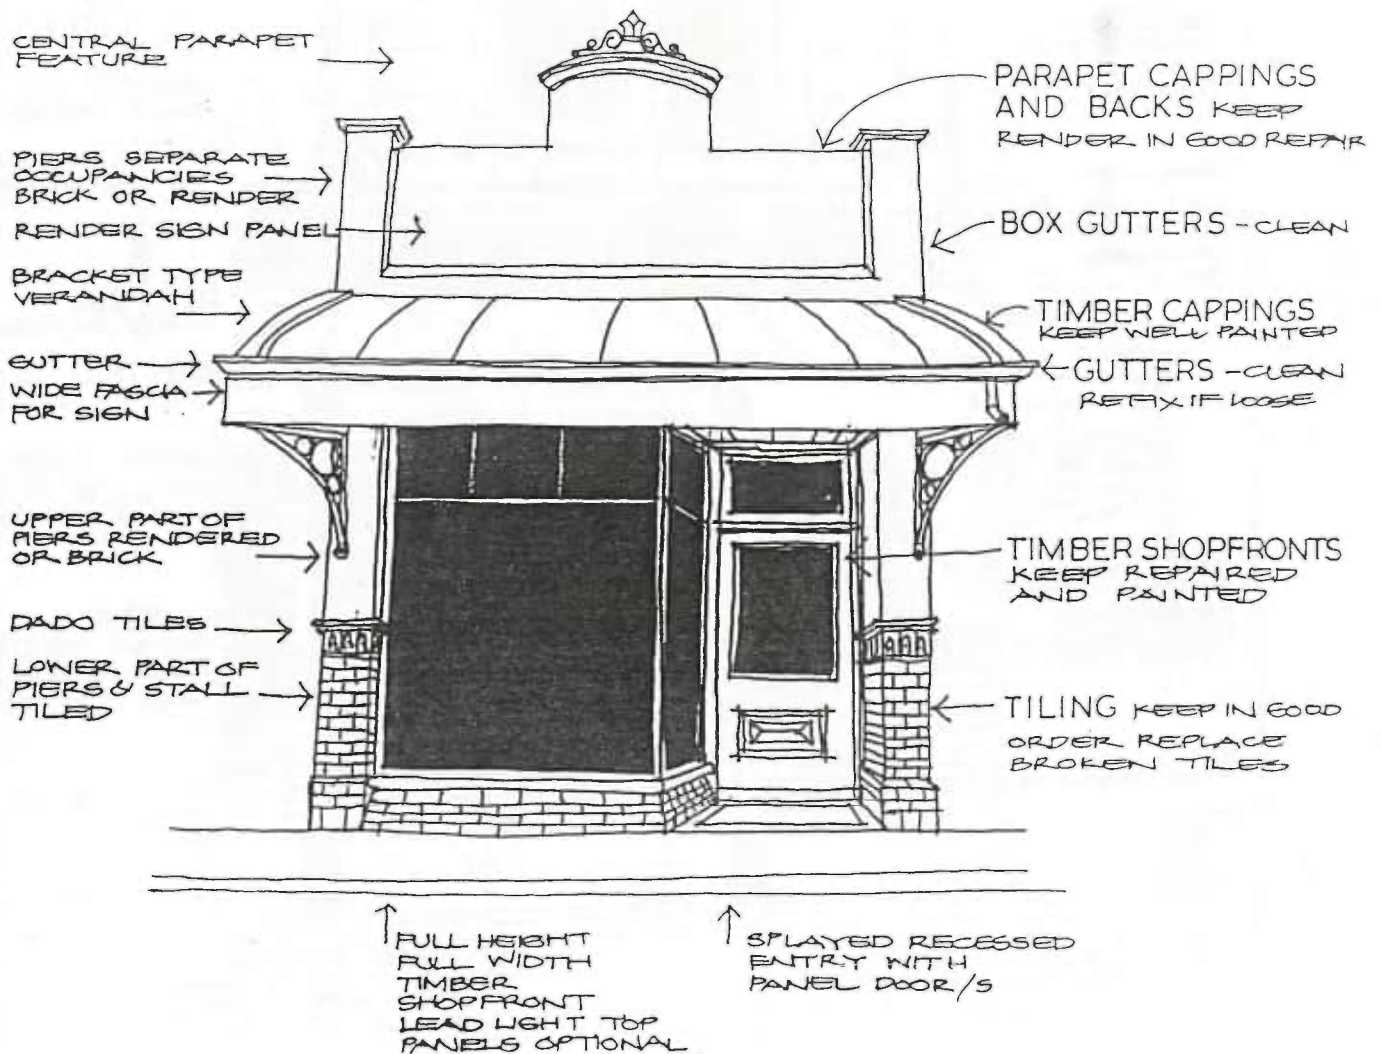 CENTRAL PARAPET
FEATURE
PIERS SEPARATE
OCCUPANCIES
BRICK OR RENDER
RENDER SIGN PANEL
BRACKET TYPE
VERANDAH
GUTTER
WIDE FASCIA
FOR SIGN
UPPER PART OF
PIERS RENDERED
OR BRICK
DADO TILES
LOWER PART OF
PIERS & STALL
TILED
PARAPET CAPPINGS
AND BACKS KEEP
RENDER IN GOOD REPAIR
BOX GUTTERS - CLEAN
TIMBER CAPPINGS
KEEP WELL PAINTED
GUTTERS - CLEAN
REFIX IF LOOSE
TIMBER SHOPFRONTS
KEEP REPAIRED
AND PAINTED
TILING KEEP IN GOOD
ORDER REPLACE
BROKEN TILES
FULL HEIGHT
FULL WIDTH
TIMBER
SHOPFRONT
LEAD LIGHT TOP
PANELS OPTIONAL
SPLAYED RECESSED
ENTRY WITH
PANEL DOOR/S